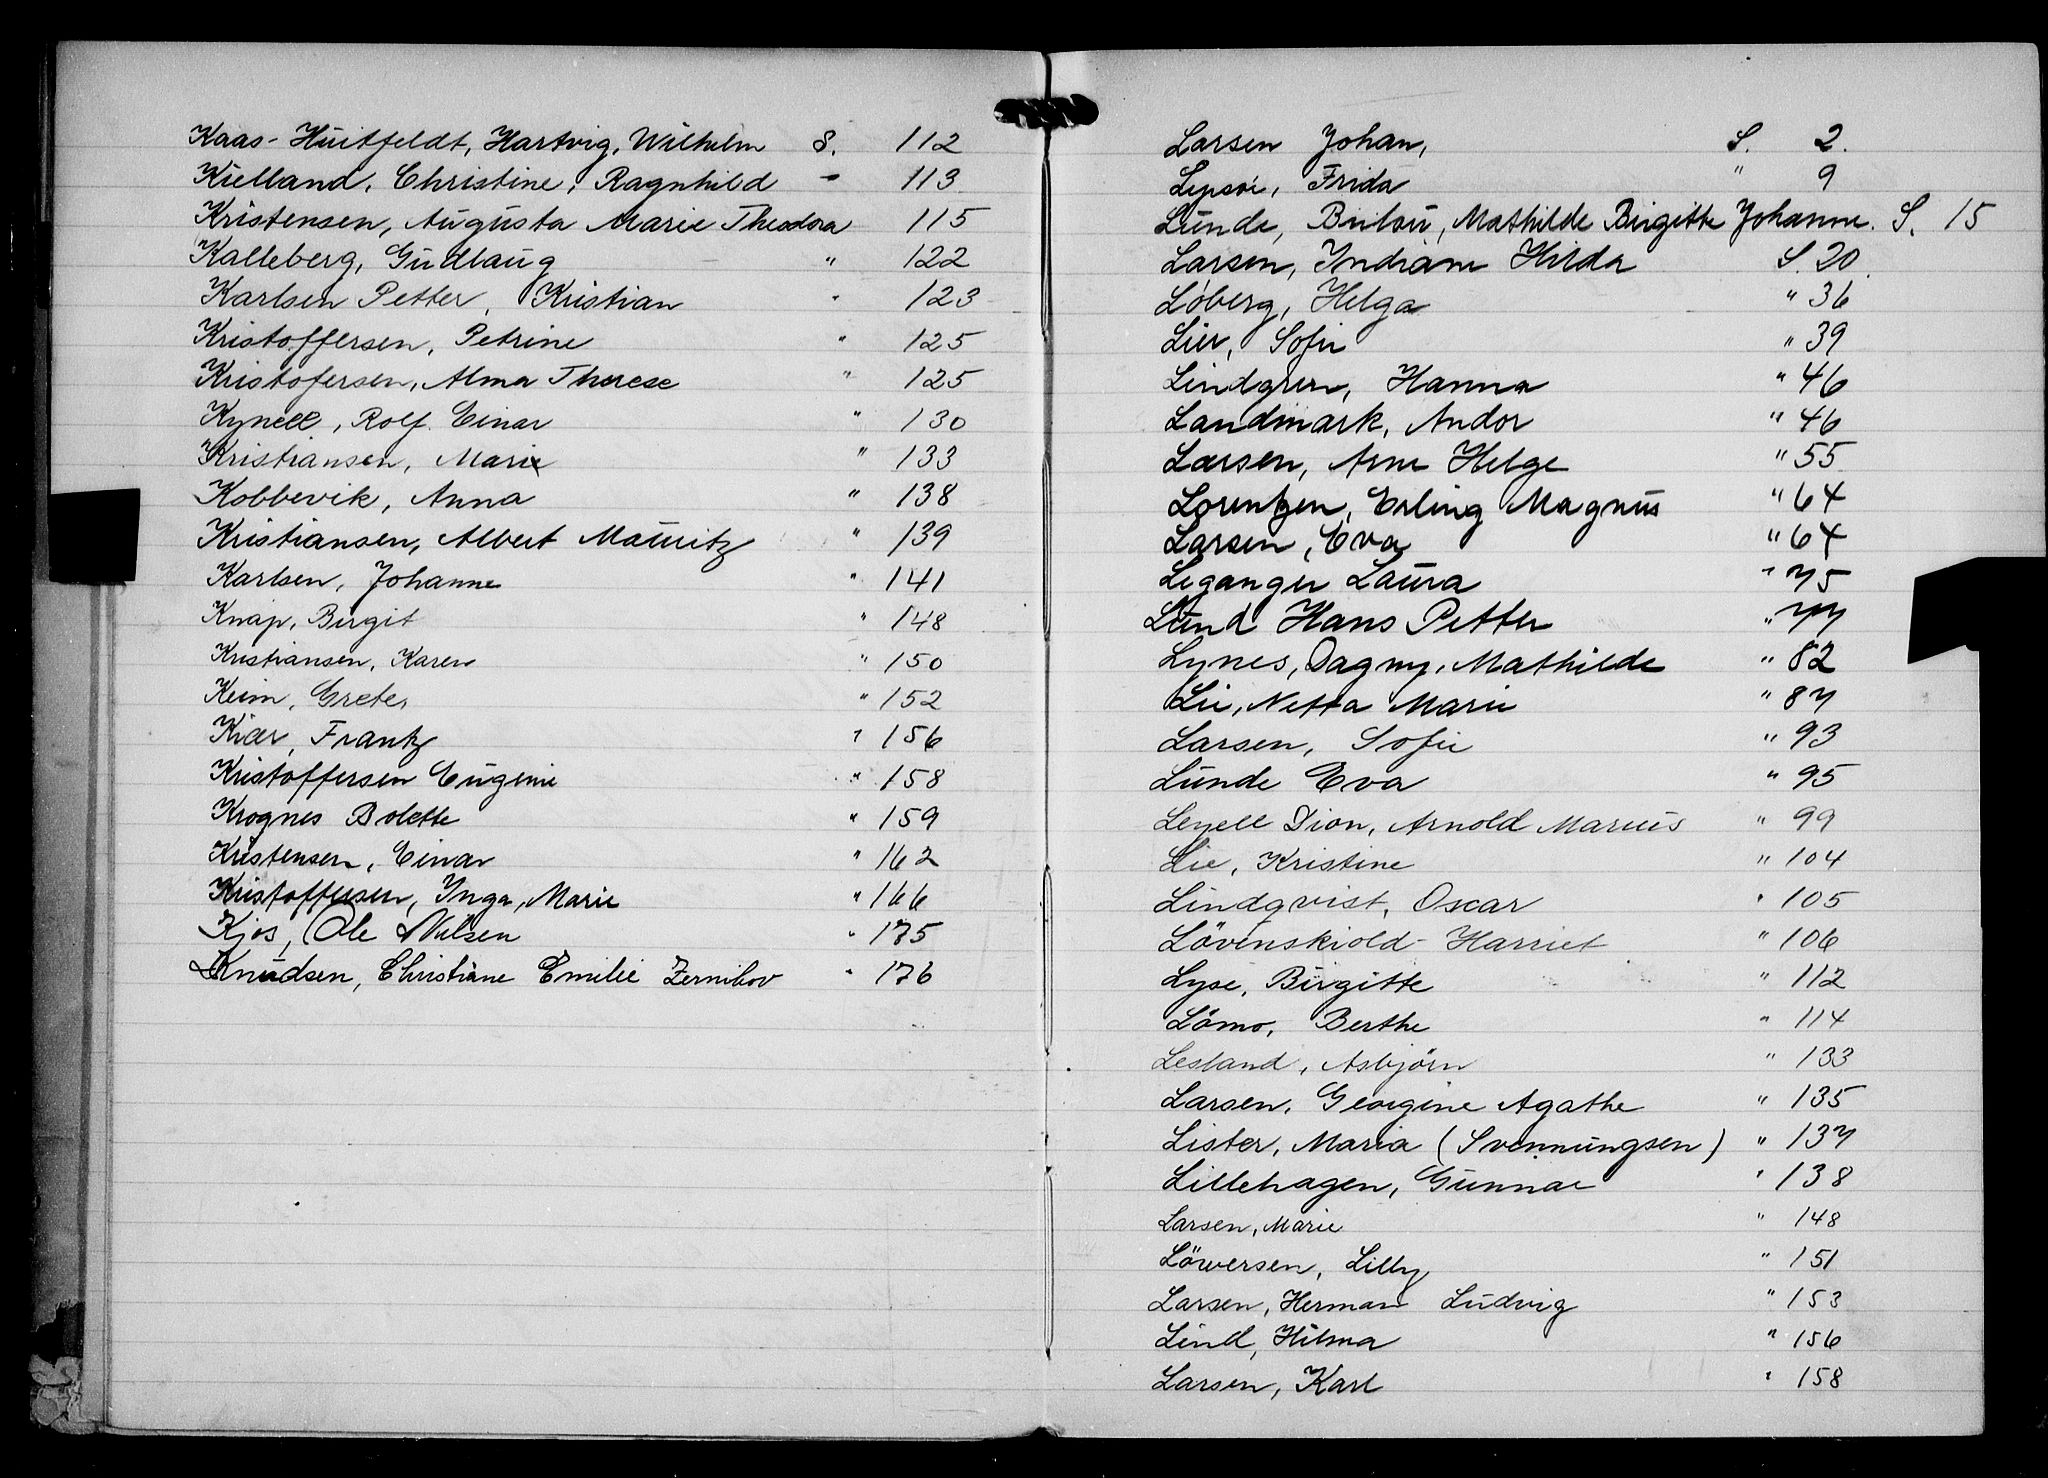 Kaas-Huitfeldt, Hartvig, Wilhelm S. 112
Kielland, Christine, Ragnhild " 113
Kristensen, Augusta Marie Theodora 115
Kalleberg, Gudlaug " 122
Karlsen Petter, Kristian " 123
Kristoffersen, Petrine " 125
Kristofersen, Alma Therese " 125
Kynell, Rolf Einar " 130
Kristiansen, Marie " 133
Kobbevik, Anna " 138
Kristiansen, Albert Mauritz " 139
Karlsen, Johanne " 141
Knap, Birgit " 148
Kristiansen, Karen " 150
Keim, Grete, " 152
Kiær, Frantz " 156
Kristoffersen Eugenie " 158
Krognes Bolette " 159
Kristensen, Einar " 162
Kristoffersen, Inga, Marie " 166
Kjos, Ole Nilsen " 175
Knudsen, Christiane Emilie Zernikov " 176
Larsen Johan, S. 2.
Lepsøi, Frida " 9
Lunde, Mathilde Birgitte Johanne. S. 15
Larsen, Indiane Hilda S. 20.
Løberg, Helga " 36
Lier, Sofie " 39
Lindgren, Hanna " 46
Landmark, Andor " 46
Larsen, Arne Helge " 55
Lorentzen, Erling Magnus " 64
Larsen, Eva " 64
Leganger Laura " 75
Lund Hans Petter " 77
Lynes, Dagny, Mathilde " 82
Lie, Netta Marie " 87
Larsen, Sofie " 93
Lunde Eva " 95
Leyell Dion, Arnold Marius " 99
Lie, Kristine " 104
Lindqvist, Oscar " 105
Lövenskiold Harriet " 106
Lyse, Birgitte " 112
Lömo, Berthe " 114
Lesland, Asbjörn " 133
Larsen, Georgine Agathe " 135
Lister, Maria (Svennungsen) " 137
Lillehagen, Gunnar " 138
Larsen, Marie " 148
Löwersen, Lilly " 151
Larsen, Herman Ludvig " 153
Lind, Hilma " 156
Larsen, Karl " 158